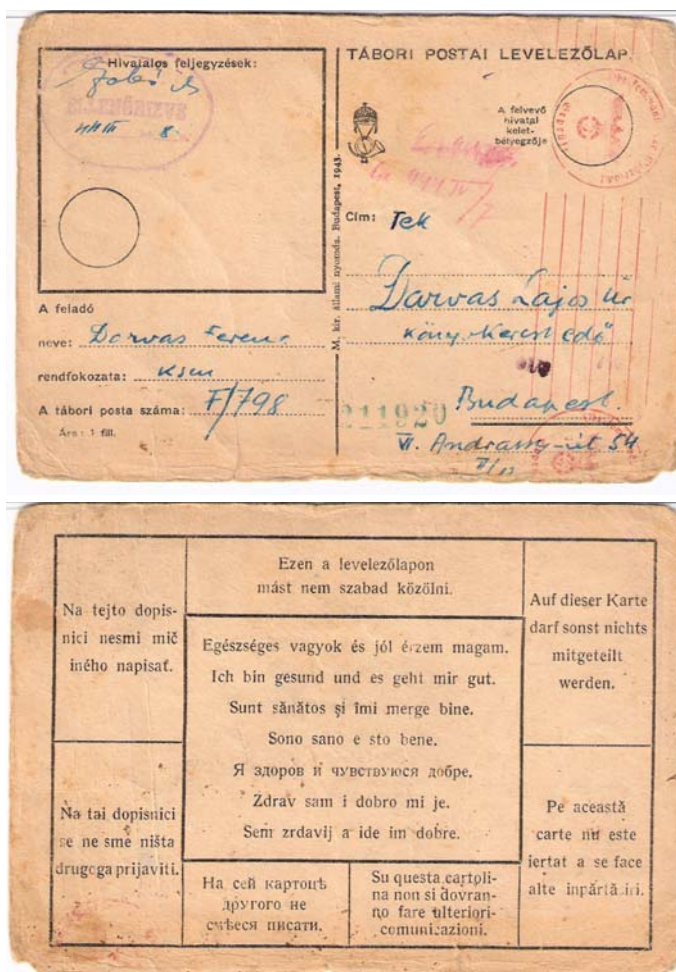 Hivatalos feljegyzések:
Szabó
ELLENŐRIZVE
A feladó
neve: Darvas Ferenc
rendfokozata: KSM
A tábori posta száma: F/798
Ára: 1 fill.
M. kir. Állami nyomda. Budapest, 1943.
TÁBORI POSTAI LEVELEZŐLAP.
A felvevő
hivatal
kelet-
bélyegzője
Cím: Tek
Darvas Lajos úr
könyvkereskedő
211920 Budapest.
VI. Andrassy-út 54
Ezen a levelezőlapon
mást nem szabad közölni.
Na tejto dopis-
nici nesmi mič
iného napisať.
Auf dieser Karte
darf sonst nichts
mitgeteilt
werden.
Egészséges vagyok és jól érzem magam.
Ich bin gesund und es geht mir gut.
Sunt sănătos și îmi merge bine.
Sono sano e sto bene.
Я здоров и чувствуюся добре.
Zdrav sam i dobro mi je.
Sem zrdavij a ide im dobre.
Na tai dopisnici
se ne sme ništa
drugoga prijaviti.
Pe această
carte nu este
iertat a se face
alte inpărtăşiri.
На сей картоцѣ
другого не
смѣеся писати.
Su questa cartoli-
na non si dovran-
no fare ulteriori-
comunicazioni.